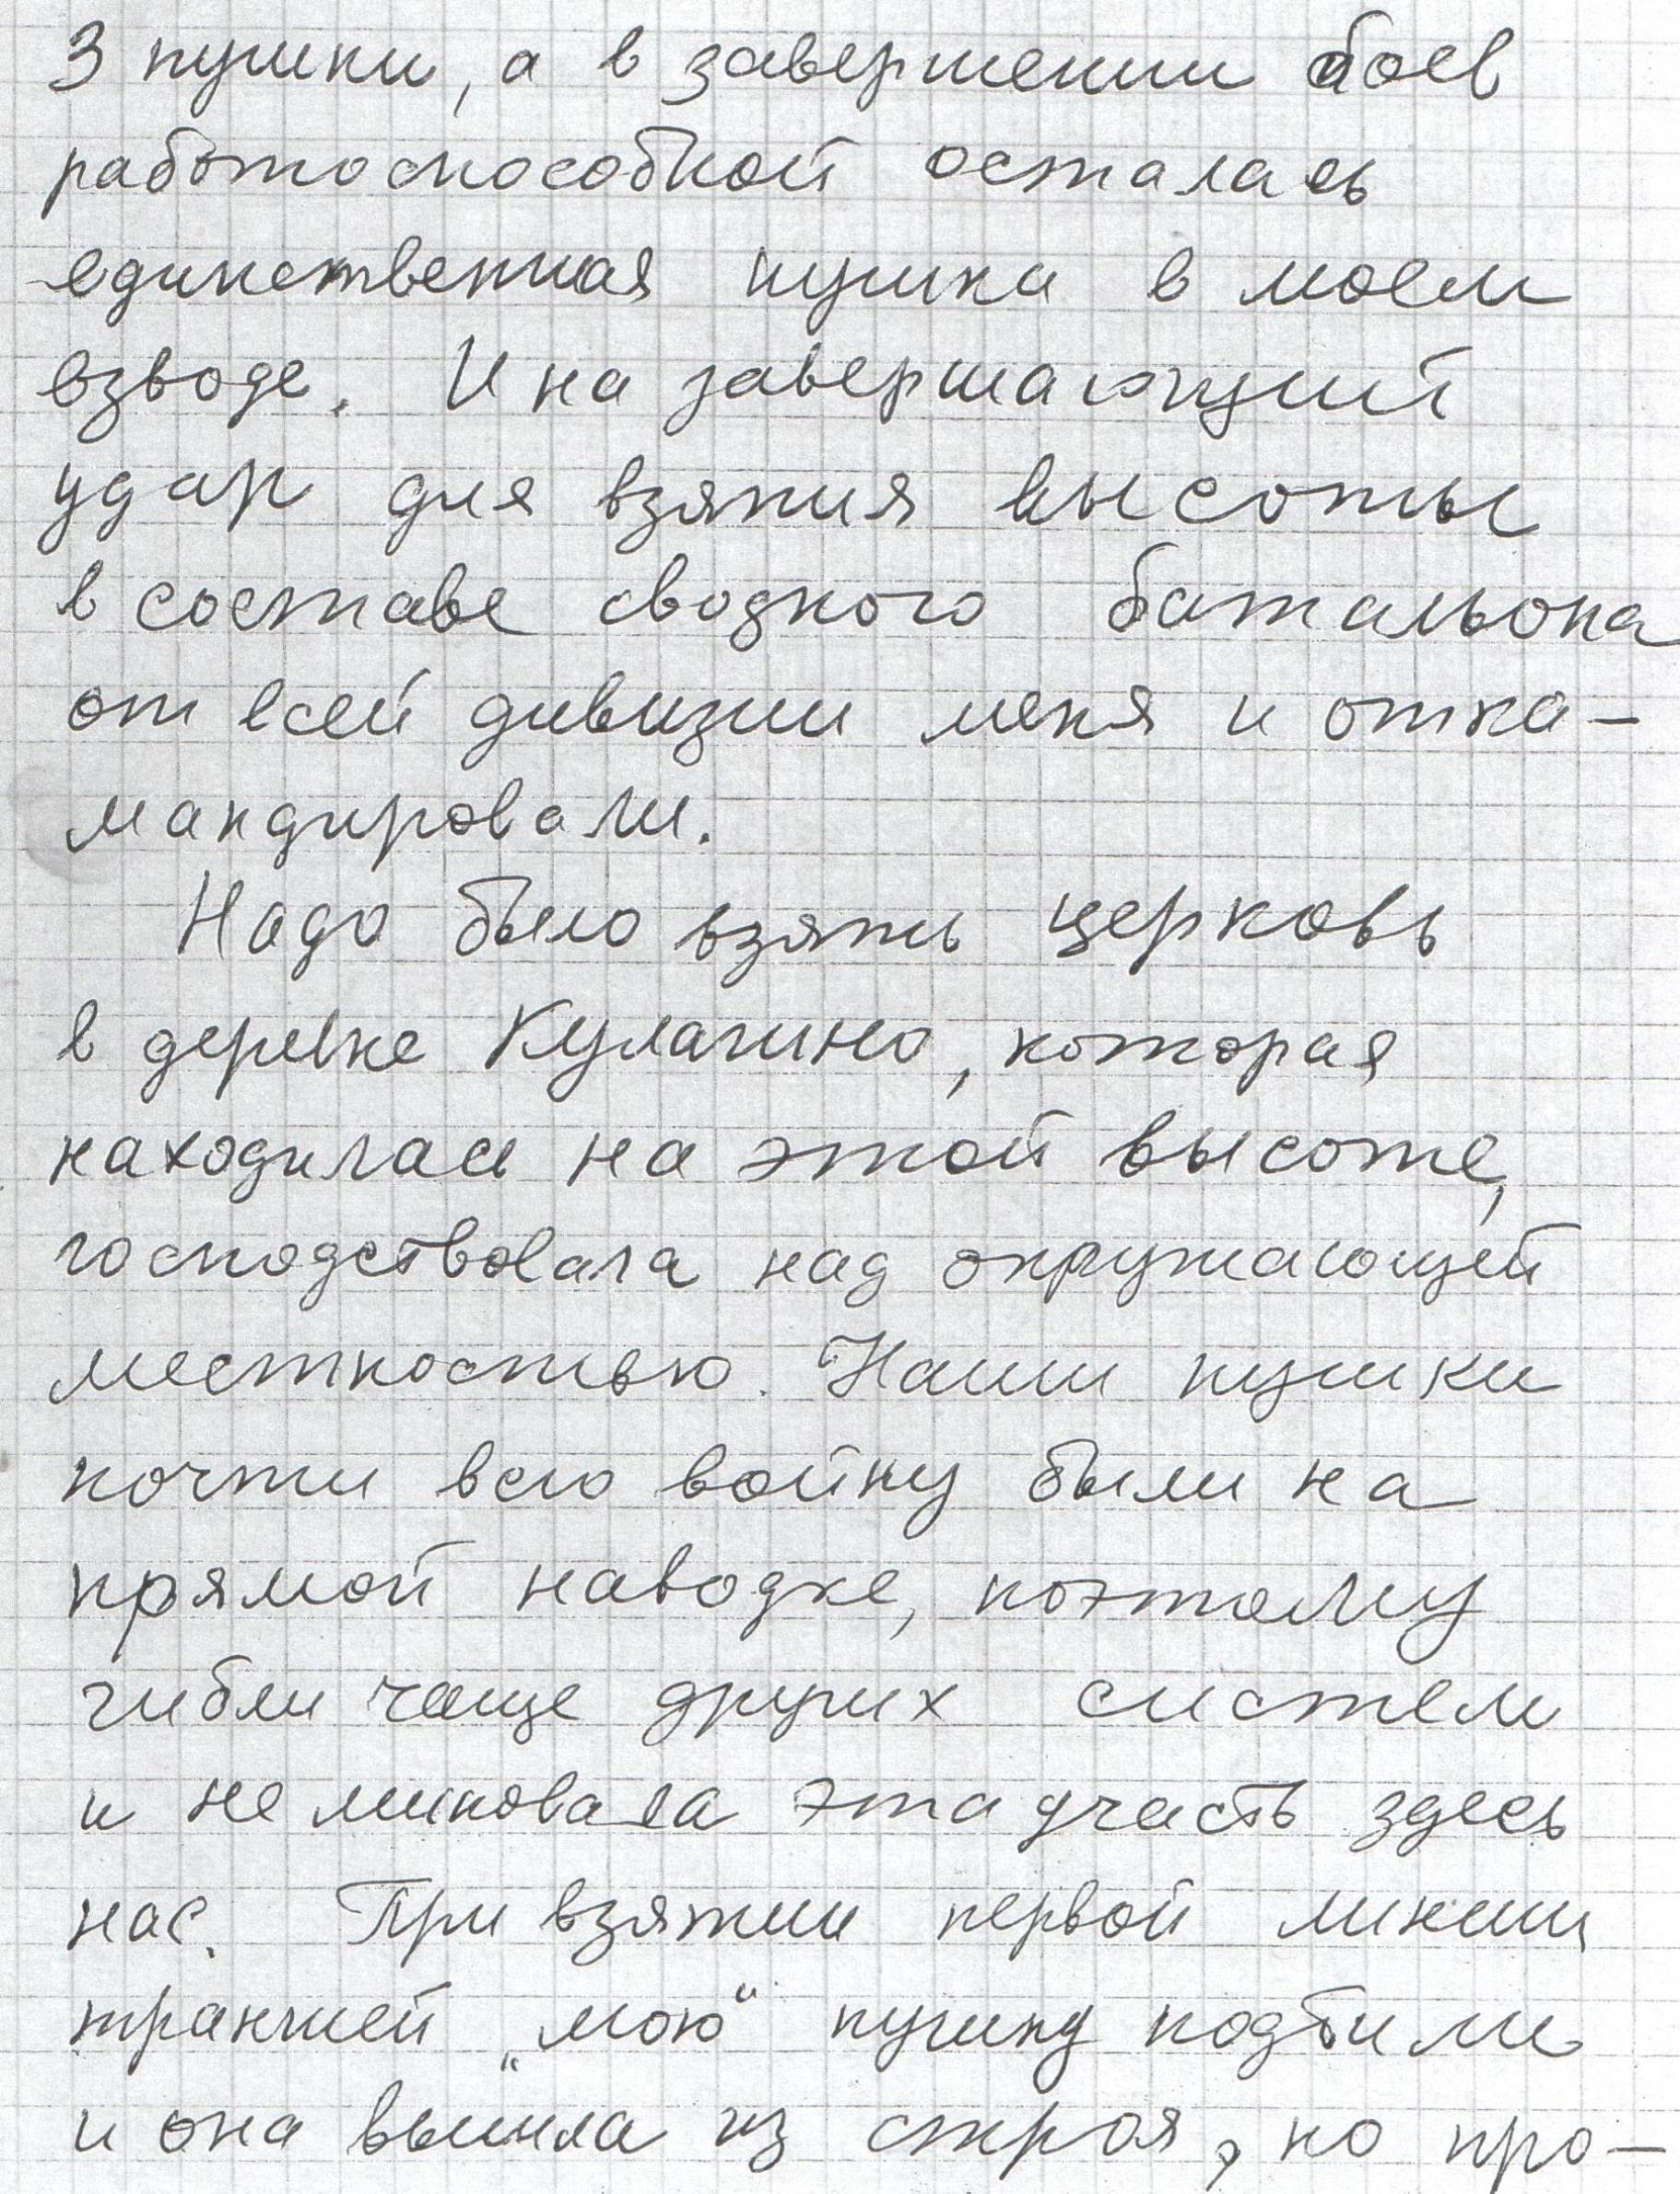 3 пушки, а в завершении боев
работоспособной осталась
единственная пушка в моем
взводе. И на завершающий
удар для взятия высоты
в составе сводного батальона
от всей дивизии меня и отка-
мандировали.
Надо было взять церковь
в деревне Кулагино, которая
находилась на этой высоте,
господствовала над окружающей
местностью. Наши пушки
почти всю войну были на
прямой наводке, поэтому
гибли чаще других систем
и не миновала эта участь здесь
нас. При взятии первой линии
траншей „мою“ пушку подбили
и она вышла из строя, но про-